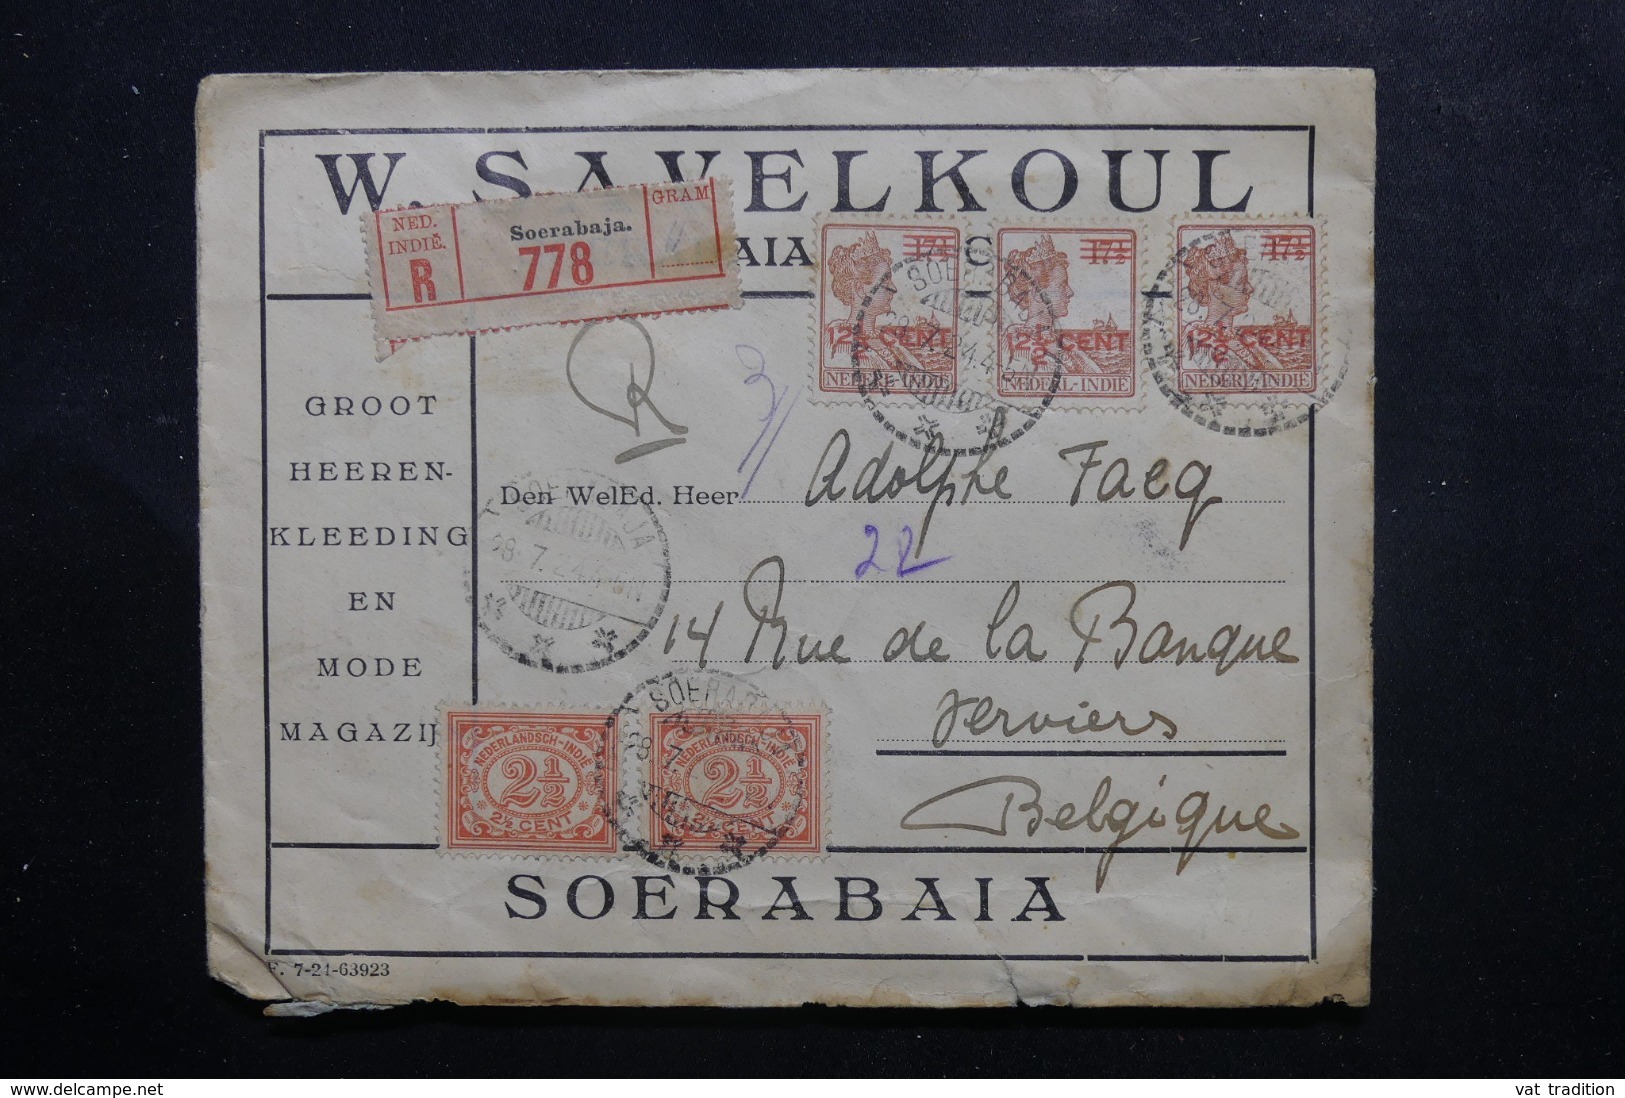 W. SAVELKOUL
NED.
INDIË.
R
Soerabaja.
778
GRAM
17½
12½ CENT
NEDERL-INDIË
17½
12½ CENT
NEDERL-INDIË
17½
12½ CENT
NEDERL-INDIË
R
GROOT
HEEREN-
KLEEDING
EN
MODE
MAGAZIJ
Den WelEd. Heer Adolphe Faeq
22
14 Rue de la Banque
Verviers
Belgique
NEDERLANDSCH-INDIË
2½
2½ CENT
NEDERLANDSCH-INDIË
2½
CENT
SOERABAIA
F. 7-24-63923
delcampe.net
vat tradition